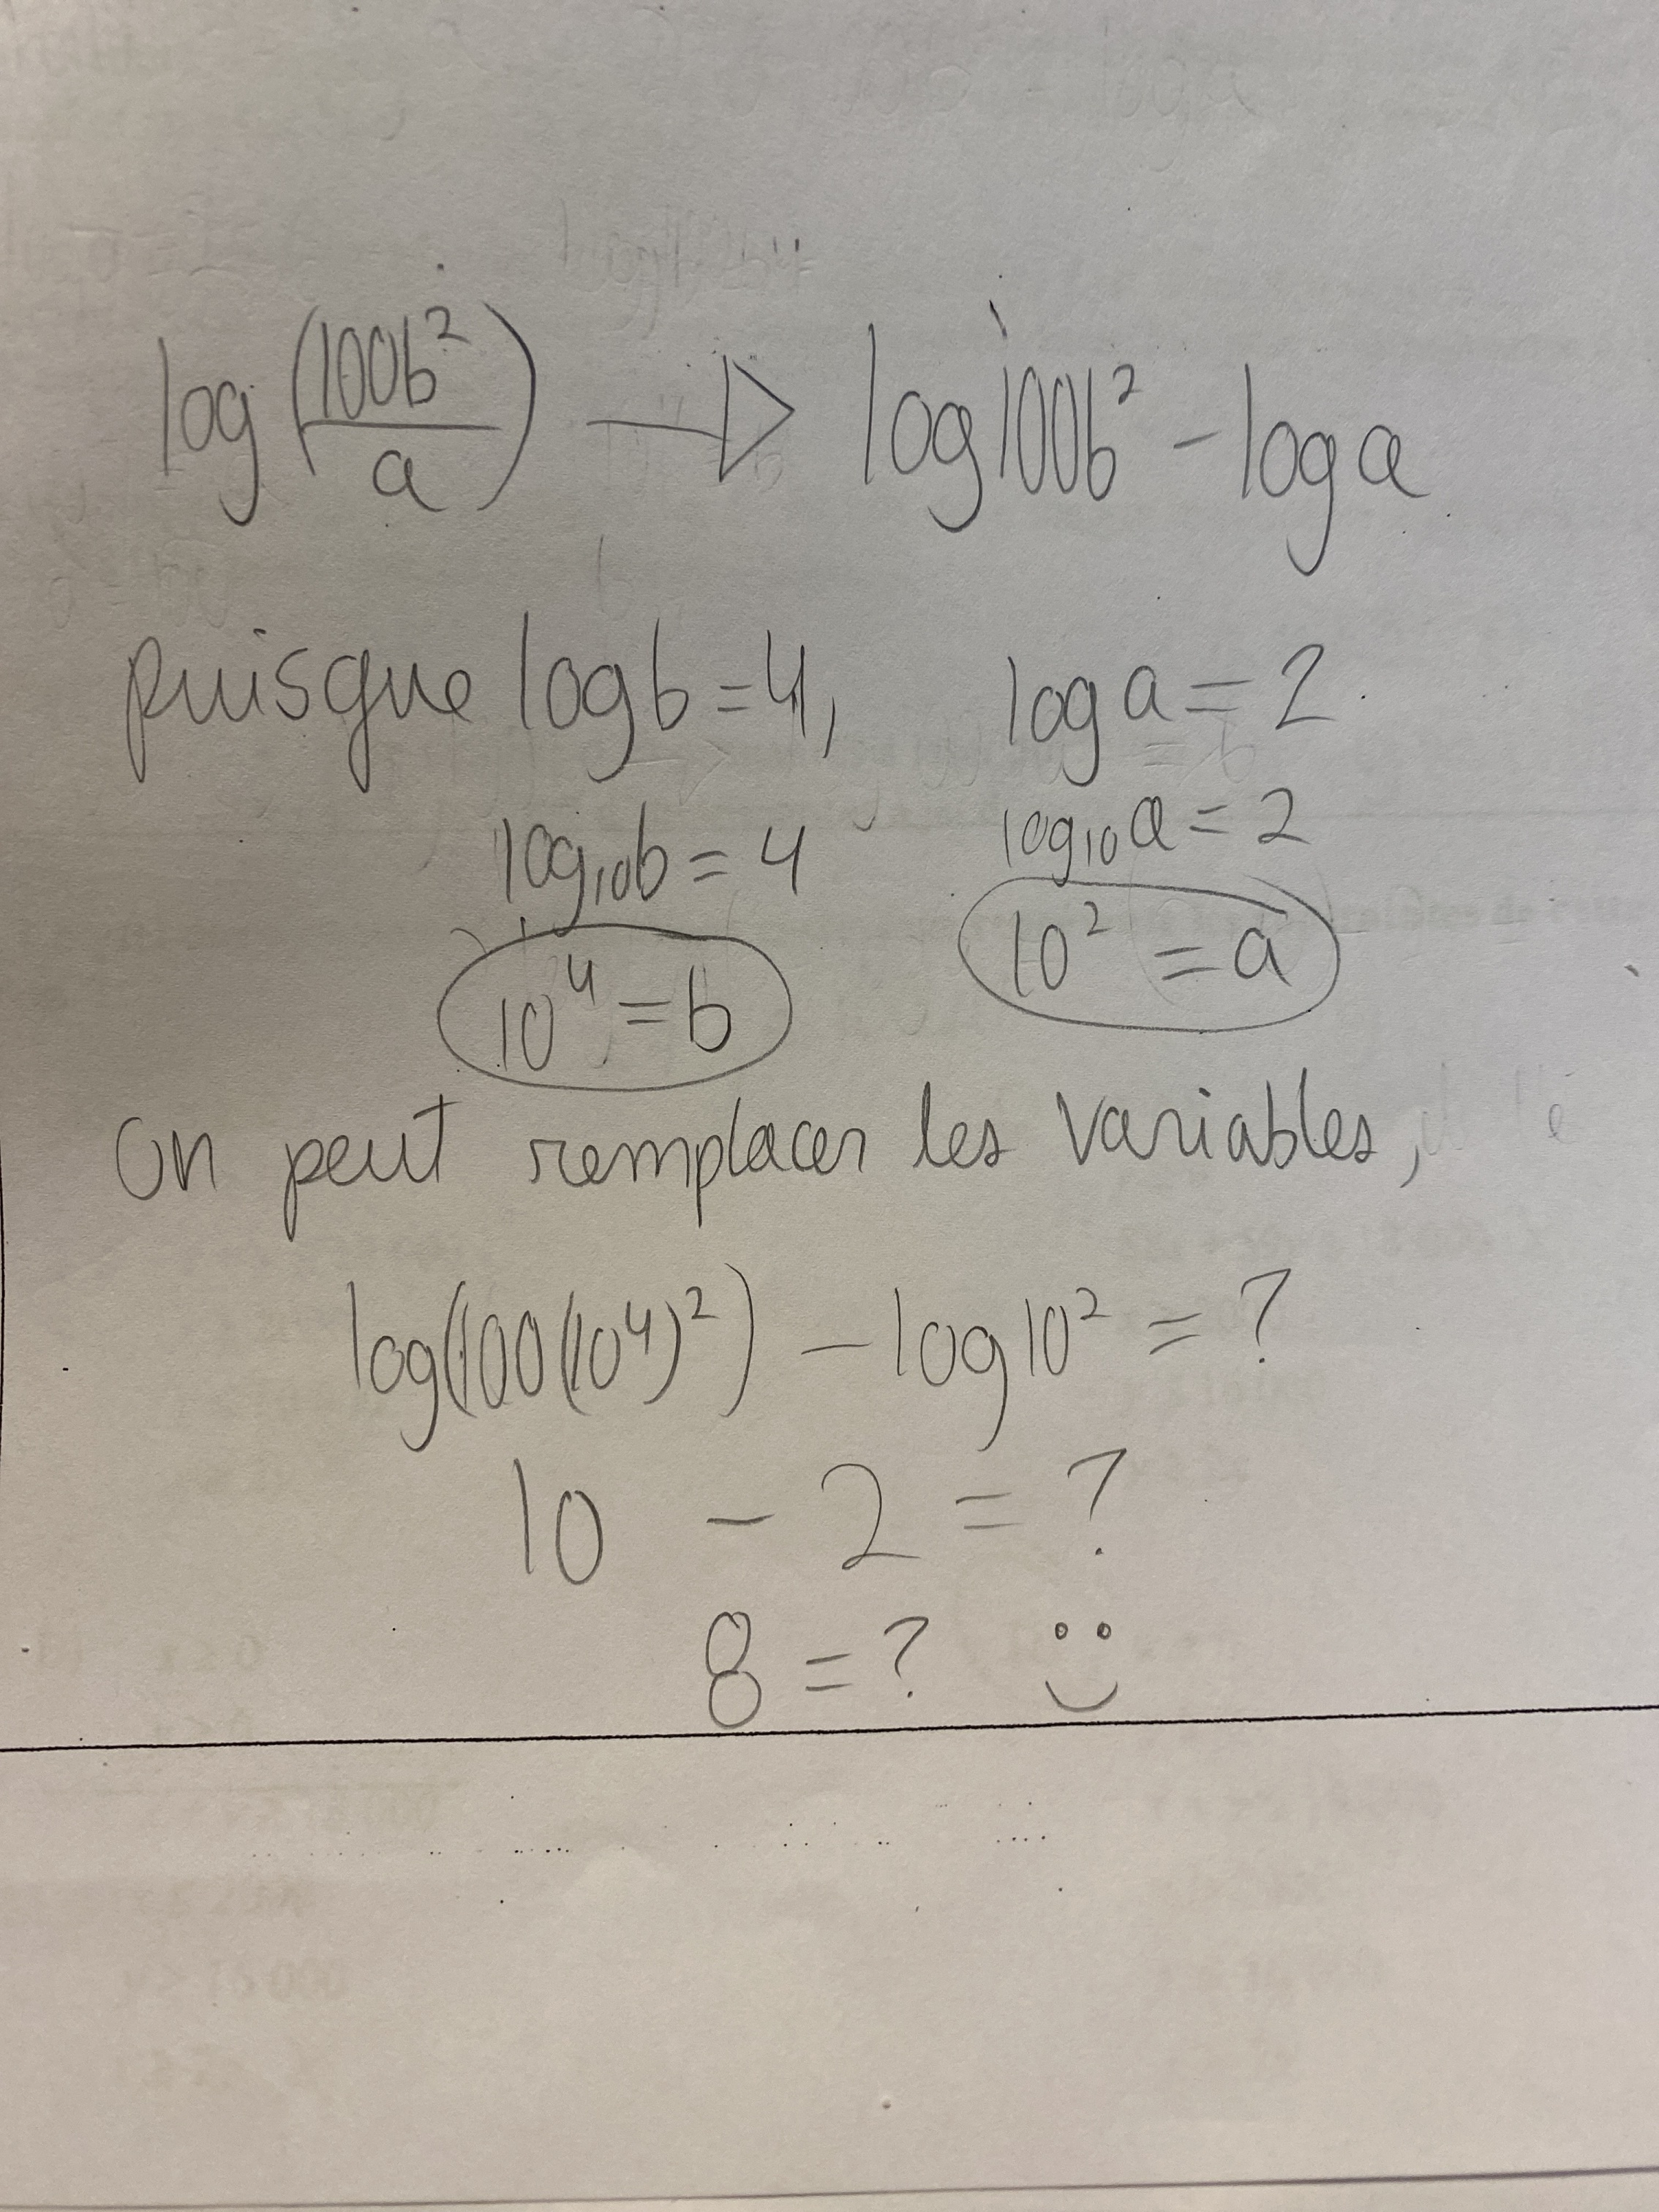 log(100b²/a) → log100b² - log a
puisque log b = 4, log a = 2
log₁₀b = 4 log₁₀a = 2
10⁴ = b 10² = a
On peut remplacer les variables,
log(100(10⁴)²) - log10² = ?
10 - 2 = ?
8 = ?